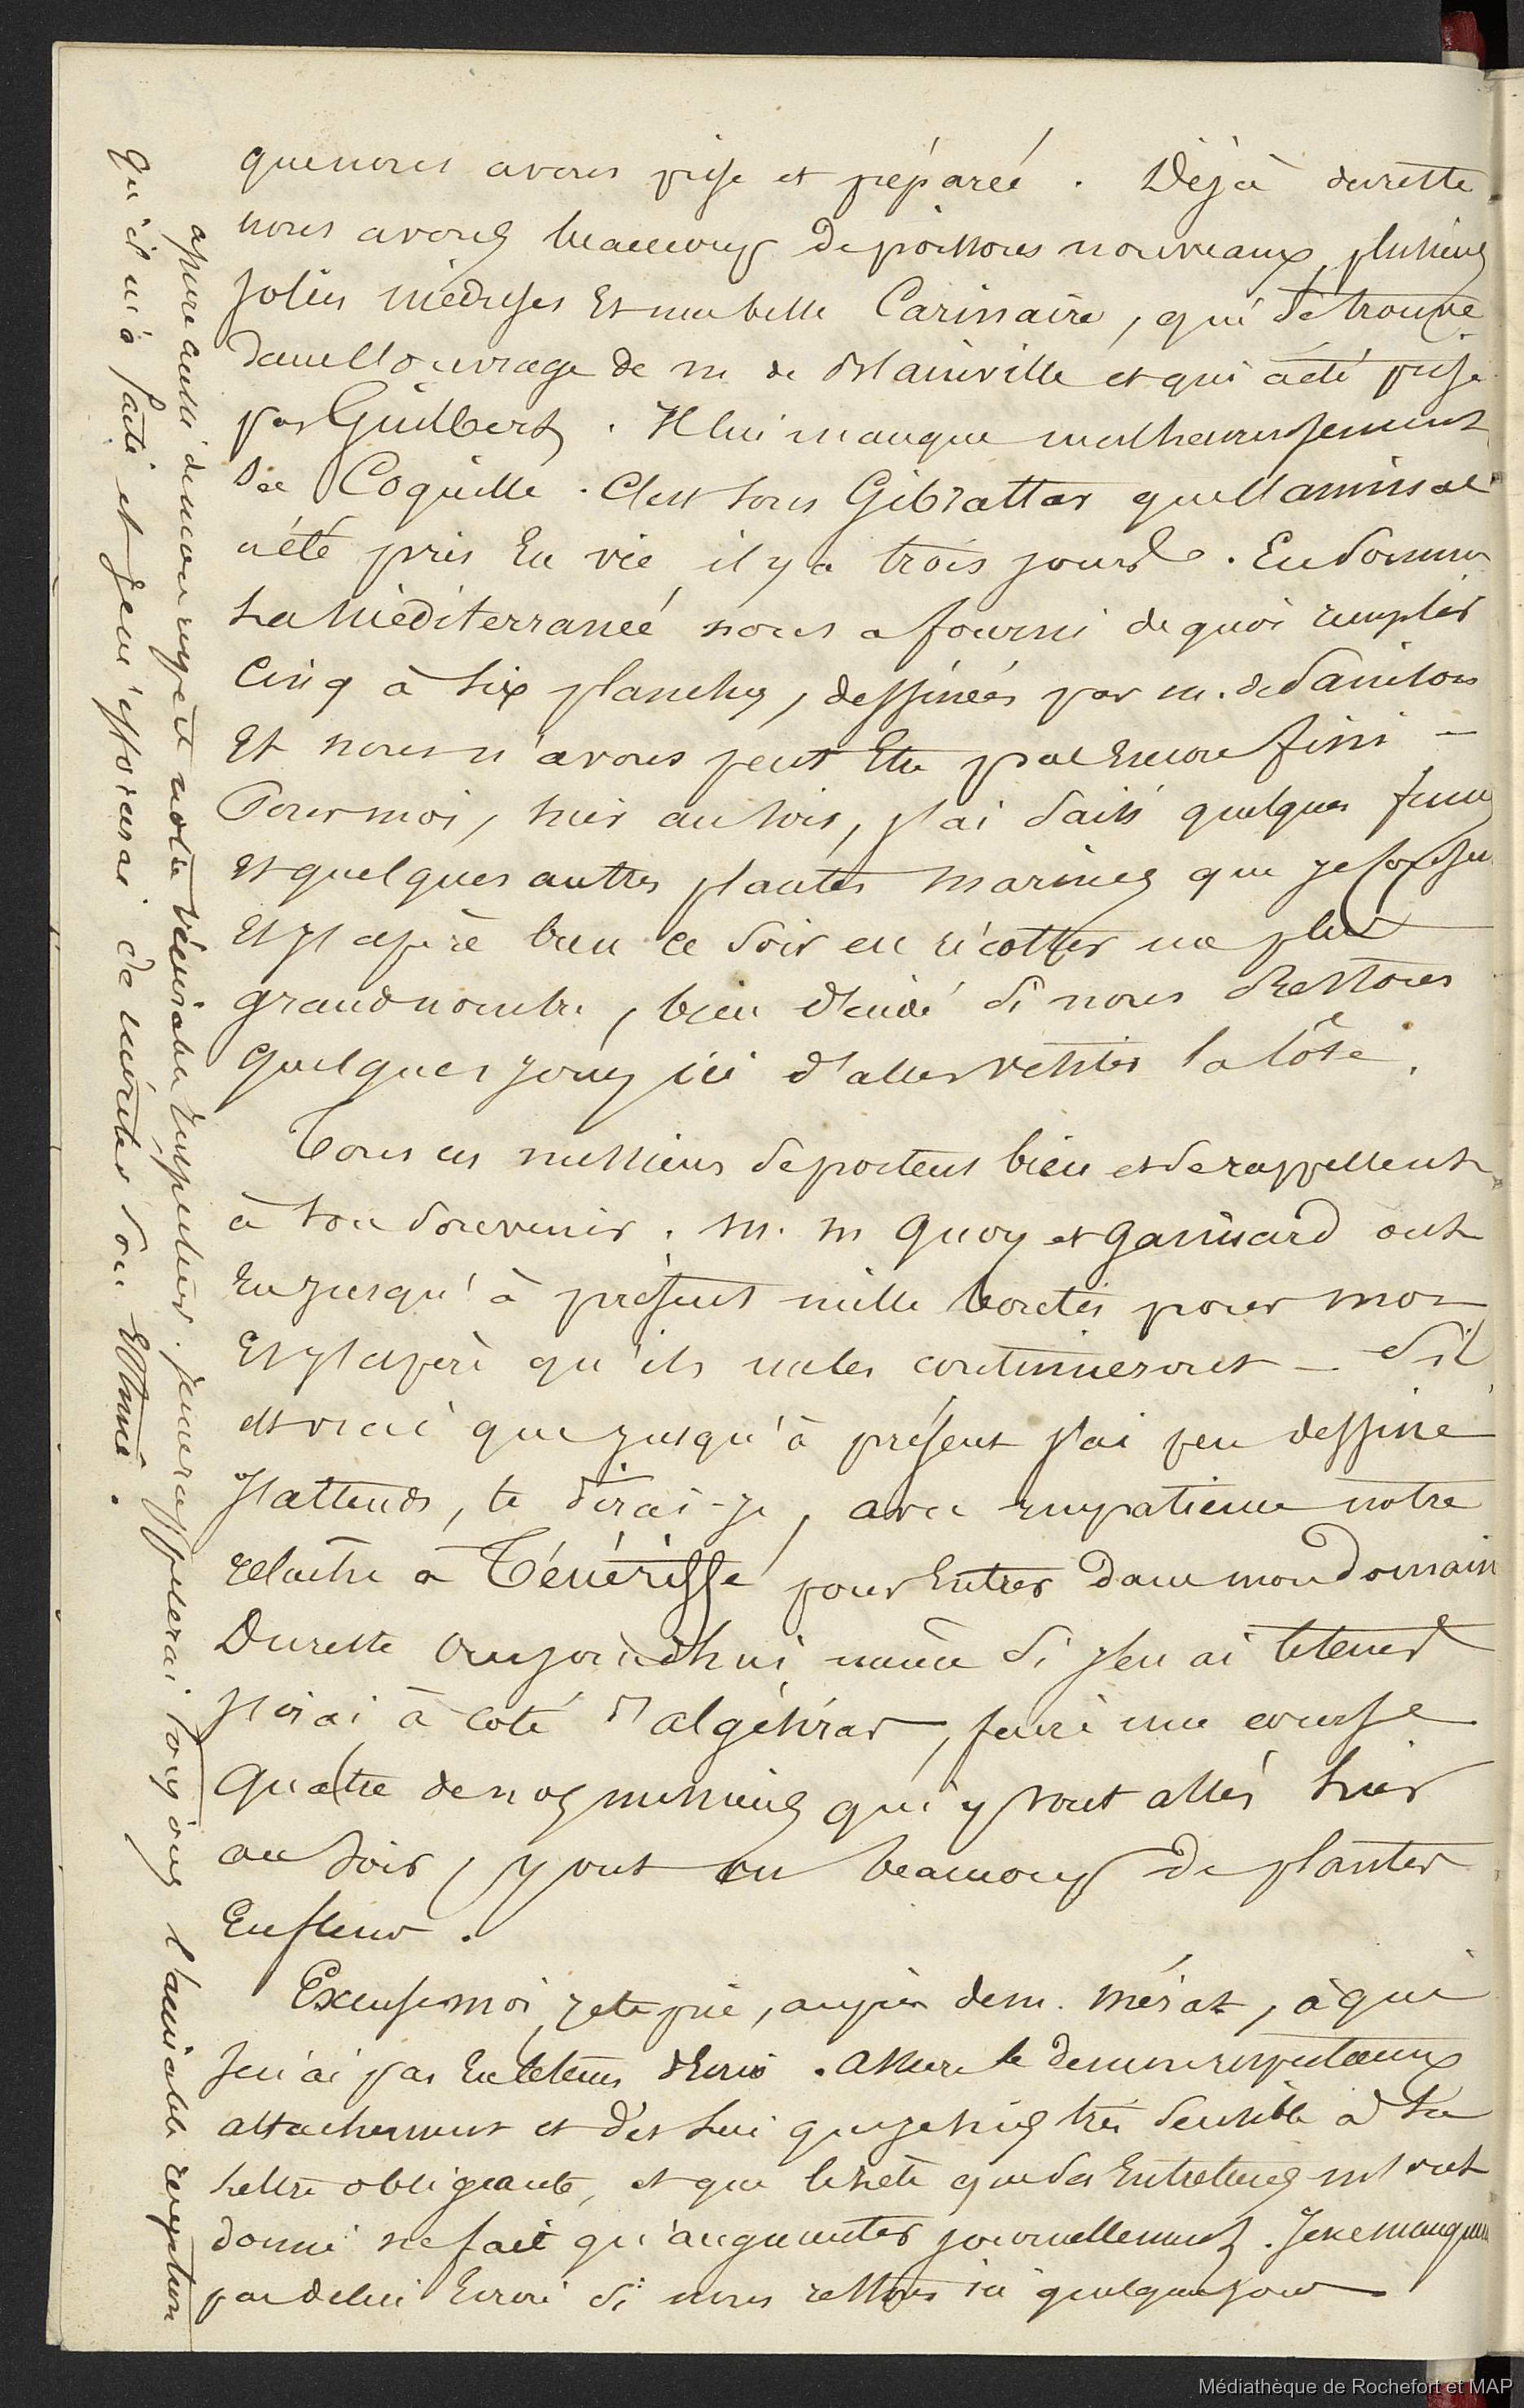 que nous avons prise et préparée. Déjà du reste
nous avons beaucoup de poissons nouveaux, plusieurs
jolies méduses Et une belle Carinaire, qui se trouve
dans l'ouvrage de m de Blainville et qui a été prise
par Guilbert. Il lui manque malheureusement
sa Coquille. C'est sous Gibraltar que l'animal
a été pris En vie il y a trois jours. En somme
La Méditerranée nous a fourni de quoi remplir
Cinq à six planches, dessinées par m. de Sainson
Et nous n'avons peut Etre pas Encore fini -
Pour moi, hier au soir, j'ai saisi quelques fucus
Et quelques autres plantes marines que je
Et j'espère bien ce soir en récolter un plus
grand nombre, bien décidé si nous restons
quelques jours ici d'aller visiter la côte.
Tous ces messieurs se portent bien et se rappellent
à ton souvenir. M. M Quoy et Gaimard ont
Eu jusqu'à présent mille bontés pour moi
Et j'espère qu'ils me les continueront - S'il
est vrai que jusqu'à présent j'ai peu dessiné
J'attends, te dirai-je, avec impatience notre
relâche à Ténériffe pour Entrer dans mon domaine
Du reste Aujourd'hui même si j'en ai le tems
j'irai à coté d'algésiras, faire une course
quatre de nos messieurs qui y sont allés hier
au soir, y ont vu beaucoup de plantes
En fleur.
Excuse moi, je te prie, auprès de m. mérat, à qui
Je n'ai pas Eu le tems d'Ecrire. assure le de mon respectueux
attachement et dis lui que je suis très sensible à sa
lettre obligeante, et que le zèle que ses Entretiens m'ont
donné ne fait qu'augmenter journellement. Je ne manquerai
pas de lui Ecrire si nous restons ici quelque jour
assure aussi de mon respect notre vénérable. je me rappelerai toujours l'aimable reception
qu'il m'a faite et je m'efforcerai de mériter son Estime.